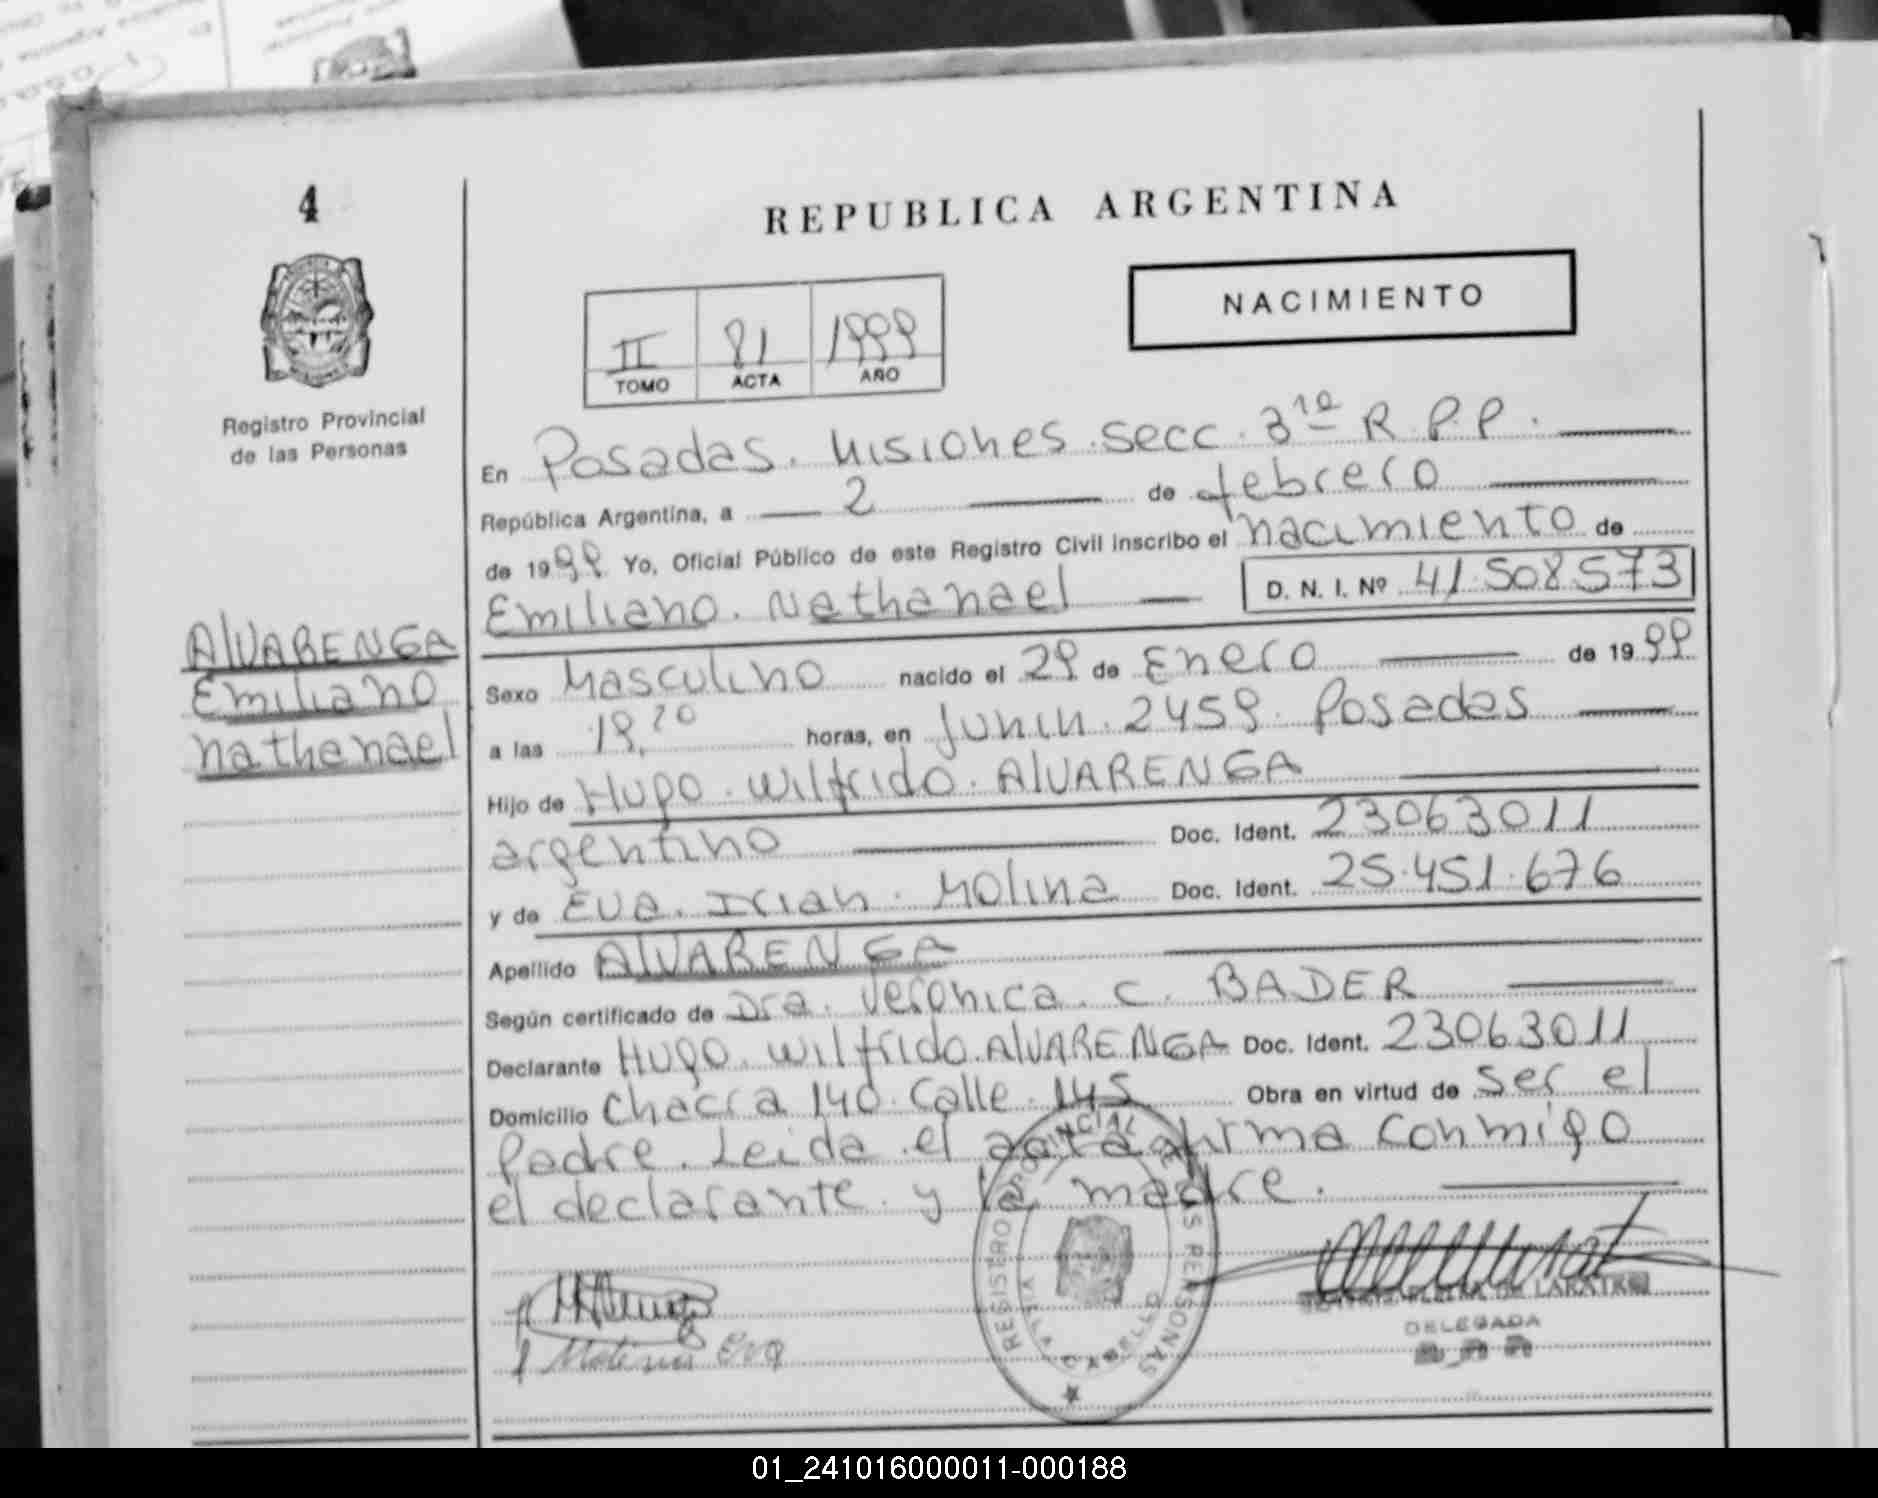 4
REPUBLICA ARGENTINA
NACIMIENTO
II 81 1999
TOMO ACTA AÑO
Registro Provincial
de las Personas
En Posadas. Misiones. secc. 3ra R.P.P.
República Argentina, a 2 de febrero
de 1999 Yo, Oficial Público de este Registro Civil inscribo el nacimiento de
Emiliano. Nathanael D. N. I. Nº 41.508573
ALVARENGA
Emiliano
nathanael
Sexo Masculino nacido el 29 de Enero de 1999
a las horas, en Junin. 2459. Posadas
Hijo de Hugo. Wilfrido. ALVARENGA
argentino Doc. Ident. 23063011
y de Eva. Irian. Molina Doc. Ident. 25.451.676
Apellido ALVARENGA
Según certificado de Dra. Veronica. C. BADER
Declarante Hugo. Wilfrido. ALVARENGA Doc. Ident. 23063011
Domicilio Chacra 140. Calle. 145 Obra en virtud de ser el
Padre. Leida. el acta firma conmigo
el declarante. y la madre.
REGISTRO PROVINCIAL PERSONAS
VILLA CABELLO
DE LARATRO
DELEGADA
Molina Eva
01_241016000011-000188